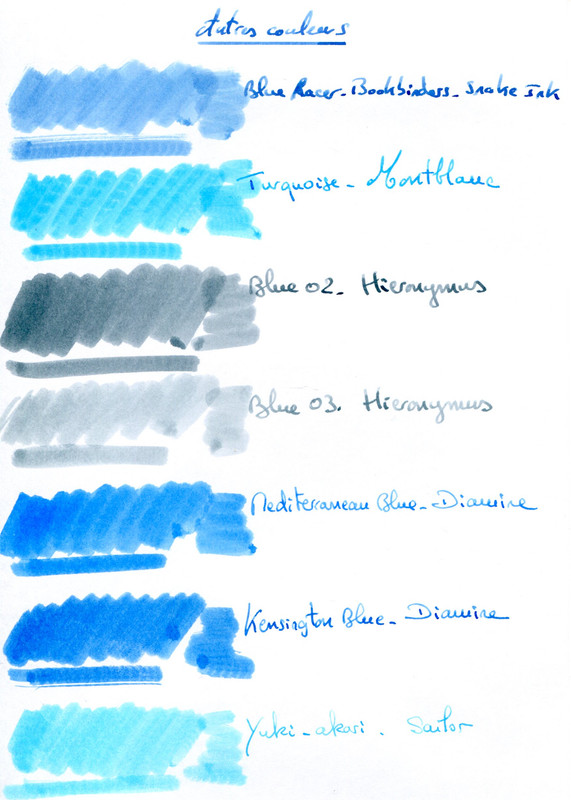 Autres couleurs
Blue Racer - Bookbinders - Snake Ink
Turquoise - Montblanc
Blue 02 - Hieronymus
Blue 03. Hieronymus
Mediterranean Blue - Diamine
Kensington Blue - Diamine
Yuki-akari. Sailor